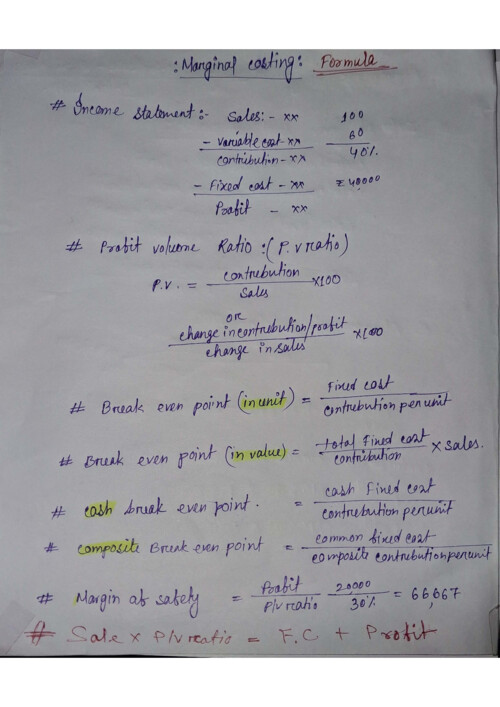 : Marginal costing : Formula
# Income statement :- Sales :- xx 100
- variable cost - xx 60
contribution - xx 40%
- Fixed cost - xx = 40000
Profit - xx
# Profit volume Ratio :( P.V ratio)
P.V. = contribution / Sales ×100
OR
change in contribution/profit / change in sales ×100
# Break even point (in unit) = Fixed cost / contribution per unit
# Break even point (in value) = total Fixed cost / contribution × sales.
# cash break even point. = cash Fixed cost / contribution per unit
# composite Break even point = common fixed cost / composite contribution per unit
# Margin of safety = Profit / P/v ratio 20000 / 30% = 66667
# Sale × P/v ratio = F.C + Profit